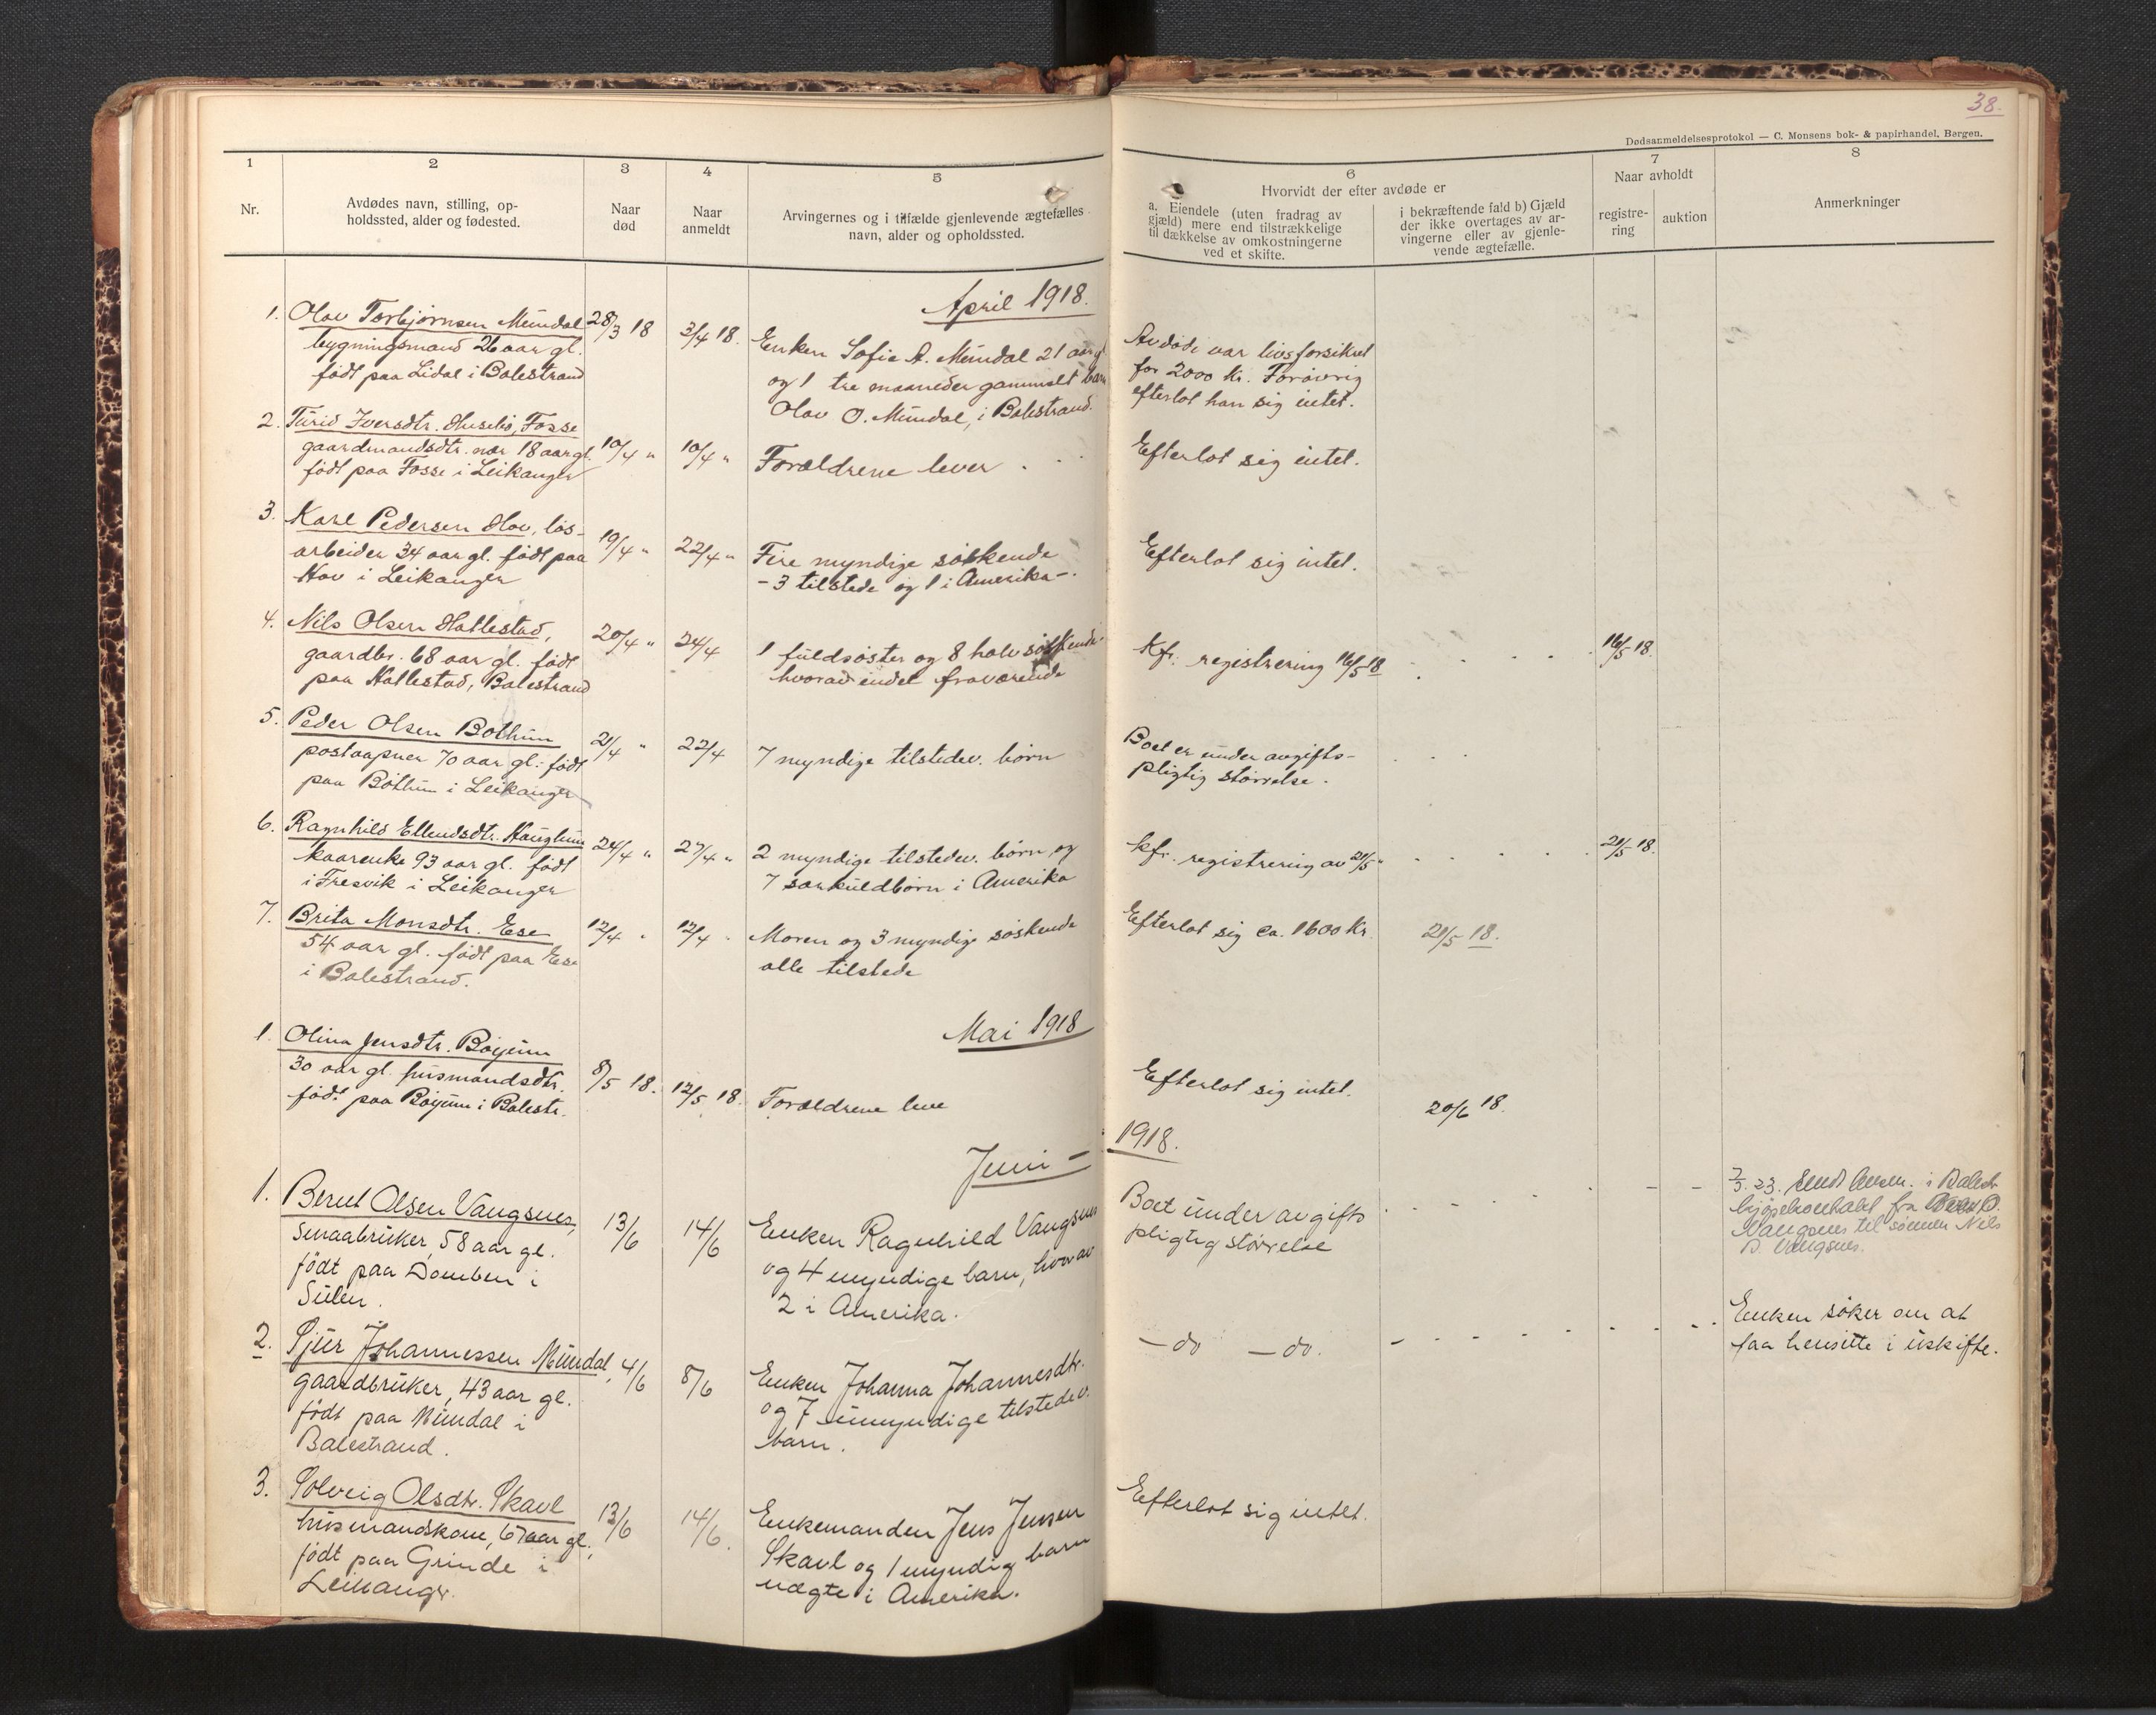 38.
Dødsanmeldelsesprotokol — C. Monsens bok- & papirhandel, Bergen.
1
Nr.
2
Avdødes navn, stilling, op-
holdssted, alder og fødested.
3
Naar
død
4
Naar
anmeldt
5
Arvingernes og i tilfælde gjenlevende ægtefælles
navn, alder og opholdssted.
6
Hvorvidt der efter avdøde er
a. Eiendele (uten fradrag av
gjæld) mere end tilstrækkelige
til dækkelse av omkostningerne
ved et skifte.
i bekræftende fald b) Gjæld
der ikke overtages av ar-
vingerne eller av gjenle-
vende ægtefælle.
7
Naar avholdt
registre-
ring
auktion
8
Anmerkninger
April 1918.
1. Olav Torbjørnsen Mundal
bygningsmand 26 aar gl.
født paa Lidal i Balestrand
28/3 18
3/4 18.
Enken Sofie A. Mundal 21 aar gl
og 1 tre maaneder gammelt barn
Olav O. Mundal, i Balestrand.
Avdøde var livsforsikret
for 2000 kr. Forøvrig
efterlot han sig intet.
2. Turid Iversdtr. Husebø, Fosse
gaardmandsdtr. nær 18 aar gl.
født paa Fosse i Leikanger
10/4 "
10/4 "
Forældrene lever
Efterlot sig intet.
3. Karl Pedersen Hov, løs-
arbeider 34 aar gl. født paa
Hov i Leikanger
19/4 "
22/4 "
Fire myndige søskende
- 3 tilstede og 1 i Amerika -.
Efterlot sig intet.
4. Nils Olsen Hatlestad,
gaardbr. 68 aar gl. født
paa Hatlestad, Balestrand
20/4 "
24/4
1 fuldsøster og 8 halvsøskende
hvorav endel fraværende
Kfr. registrering 16/5 18
16/5 18.
5. Peder Olsen Bothun
postaapner 70 aar gl. født
paa Bothun i Leikanger
21/4 "
22/4
7 myndige tilstedev. børn
Boet er under avgifts-
pligtig størrelse.
6. Ragnhild Ellendsdtr. Hauglum
kaarenke 93 aar gl. født
i Fresvik i Leikanger
24/4 "
27/4 "
2 myndige tilstedev. børn og
7 sørskuldbørn i Amerika
kfr. registrering av 21/5 "
21/5 18.
7. Brita Monsdtr. Ese
54 aar gl. født paa Ese
i Balestrand.
12/4 "
12/4 "
Moren og 3 myndige søskende
alle tilstede
Efterlot sig ca. 1600 Kr.
21/5 18.
Mai 1918
1. Olina Jensdtr. Bøyum
30 aar gl. husmandsdtr.
født paa Bøyum i Balestr.
8/5 18.
12/5 18.
Forældrene leve
Efterlot sig intet.
20/6 18.
Juni - 1918.
1. Berent Olsen Vangsnes,
smaabruker, 58 aar gl.
født paa Domben i
Sulen.
13/6
14/6
Enken Ragnhild Vangsnes
og 4 myndige barn, hvorav
2 i Amerika.
Boet under avgifts
pligtig størrelse
Vangsnes til sønnen Nils
B. Vangsnes.
2. Sjur Johannessen Mundal,
gaardbruker, 43 aar gl.
født paa Mundal i
Balestrand.
4/6
8/6
Enken Johanna Johannesdtr.
og 7 umyndige tilstedev.
barn.
- do - do.
Enken søker om at
faa hensitte i uskifte.
3. Solveig Olsdtr. Skavl
husmandskone, 67 aar gl.,
født paa Grinde i
Leikanger.
13/6
14/6.
Enkemanden Jens Jensen
Skavl og 1 myndig barn
uægte i Amerika.
Efterlot sig intet.